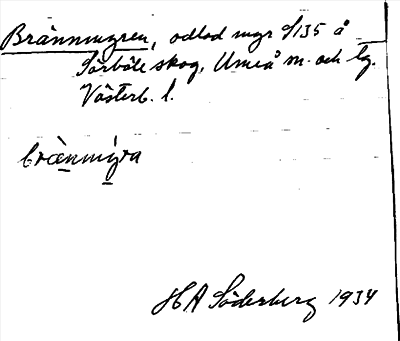 Brännmyren, odlad myr S135 å
Sörböle skog, Umeå m. och lg.
Västerb. l.
brænmýra
H A Söderberg 1934